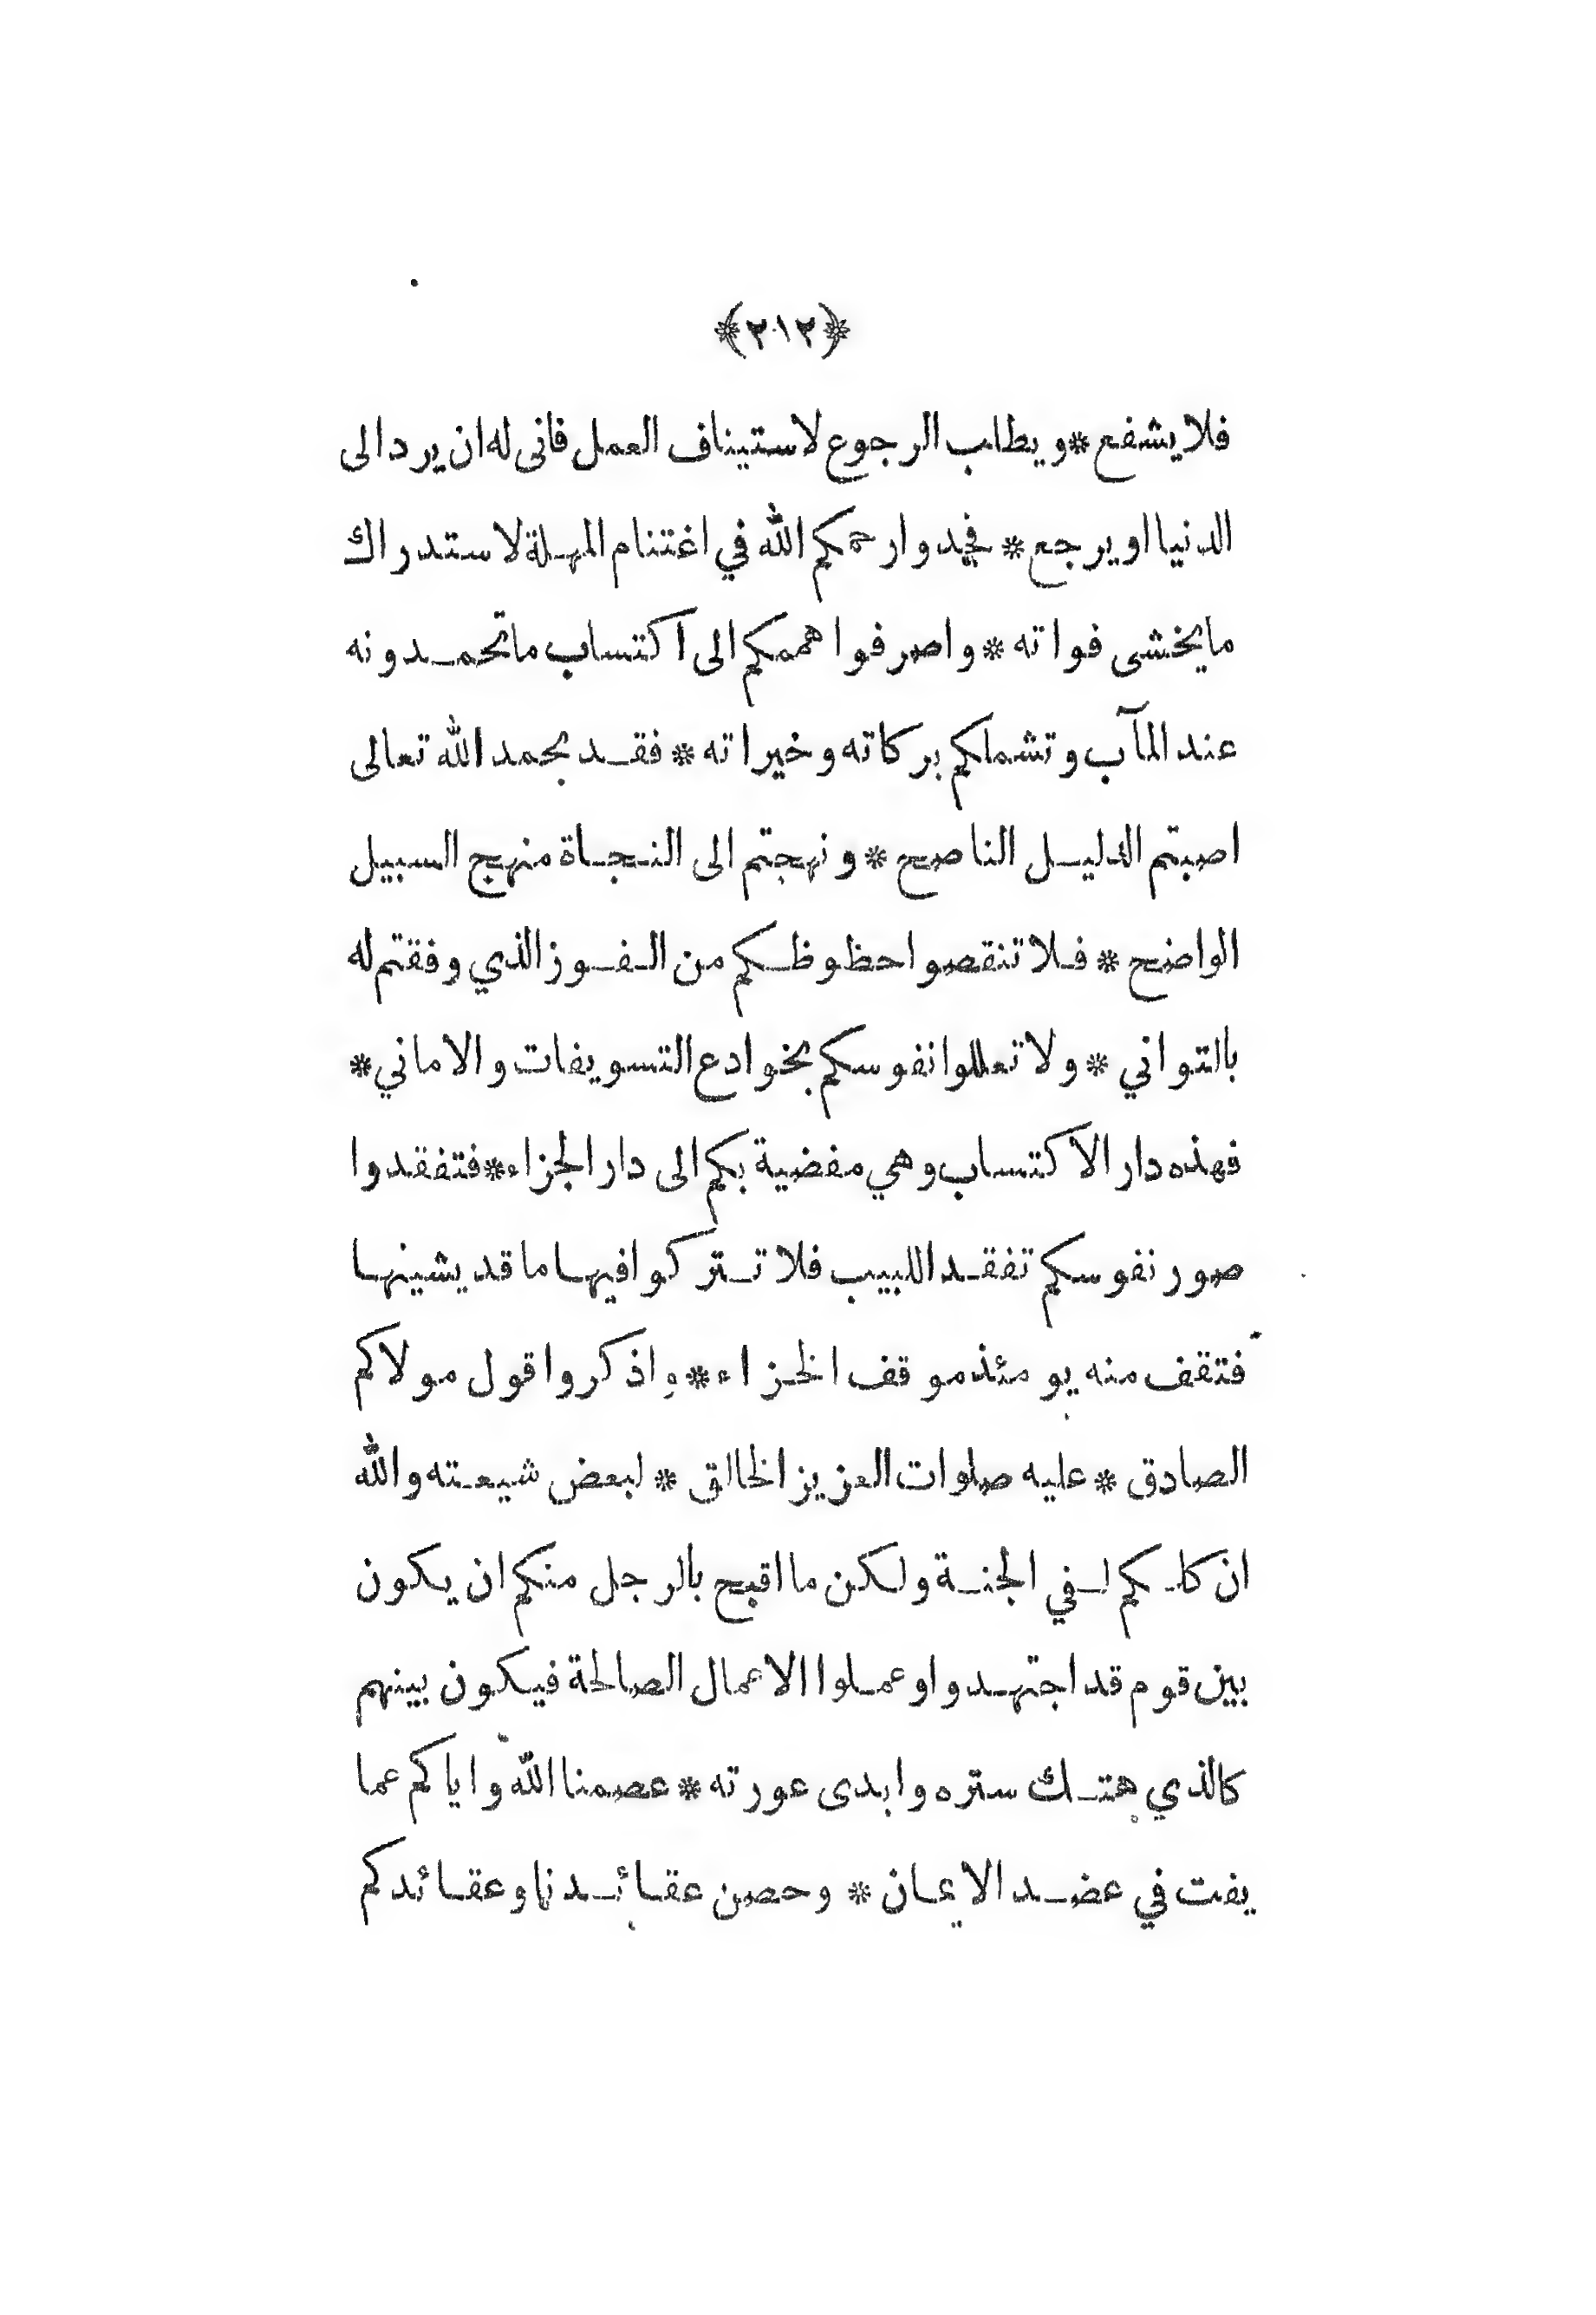 ﴿٢١٢﴾
فلا يشفع * ويطلب الرجوع لاستيناف العمل فانى له ان يرد الى
الدنيا او يرجع * فجدوا رحمكم الله في اغتنام المهلة لاستدراك
ما يخشى فواته * واصرفوا هممكم الى اكتساب ما تحمدونه
عند المآب وتشملكم بركاته وخيراته * فقد بحمد الله تعالى
اصبتم الدليل الناصح * ونهجتم الى النجاة منهج السبيل
الواضح * فلا تنقصوا حظوظكم من الفوز الذي وفقتم له
بالتواني * ولا تعللوا نفوسكم بخوادع التسويفات والاماني *
فهذه دار الاكتساب وهي مفضية بكم الى دار الجزاء * فتفقدوا
صور نفوسكم تفقد اللبيب فلا تتركوا فيها ما قد يشينها
فتقف منه يومئذ موقف الخزاء * واذكروا قول مولاكم
الصادق * عليه صلوات العزيز الخالق * لبعض شيعته والله
ان كلكم لفي الجنة ولكن ما اقبح بالرجل منكم ان يكون
بين قوم قد اجتهدوا وعملوا الاعمال الصالحة فيكون بينهم
كالذي هتك ستره وابدى عورته * عصمنا الله واياكم عما
يفت في عضد الايمان * وحصن عقائدنا وعقائدكم